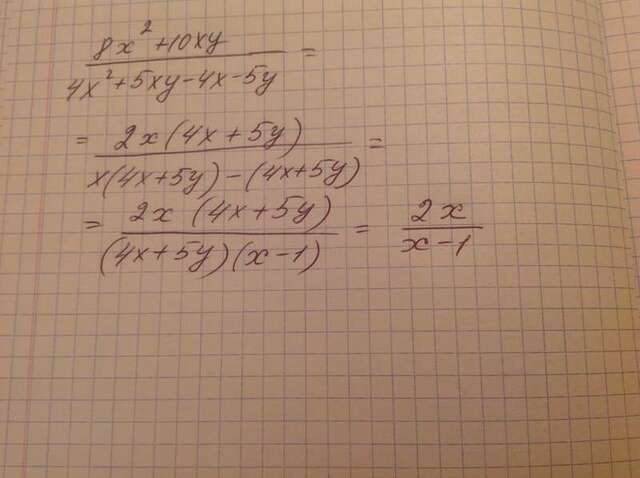 8x²+10xy / 4x²+5xy-4x-5y =
= 2x(4x+5y) / x(4x+5y)-(4x+5y) =
= 2x(4x+5y) / (4x+5y)(x-1) = 2x / x-1